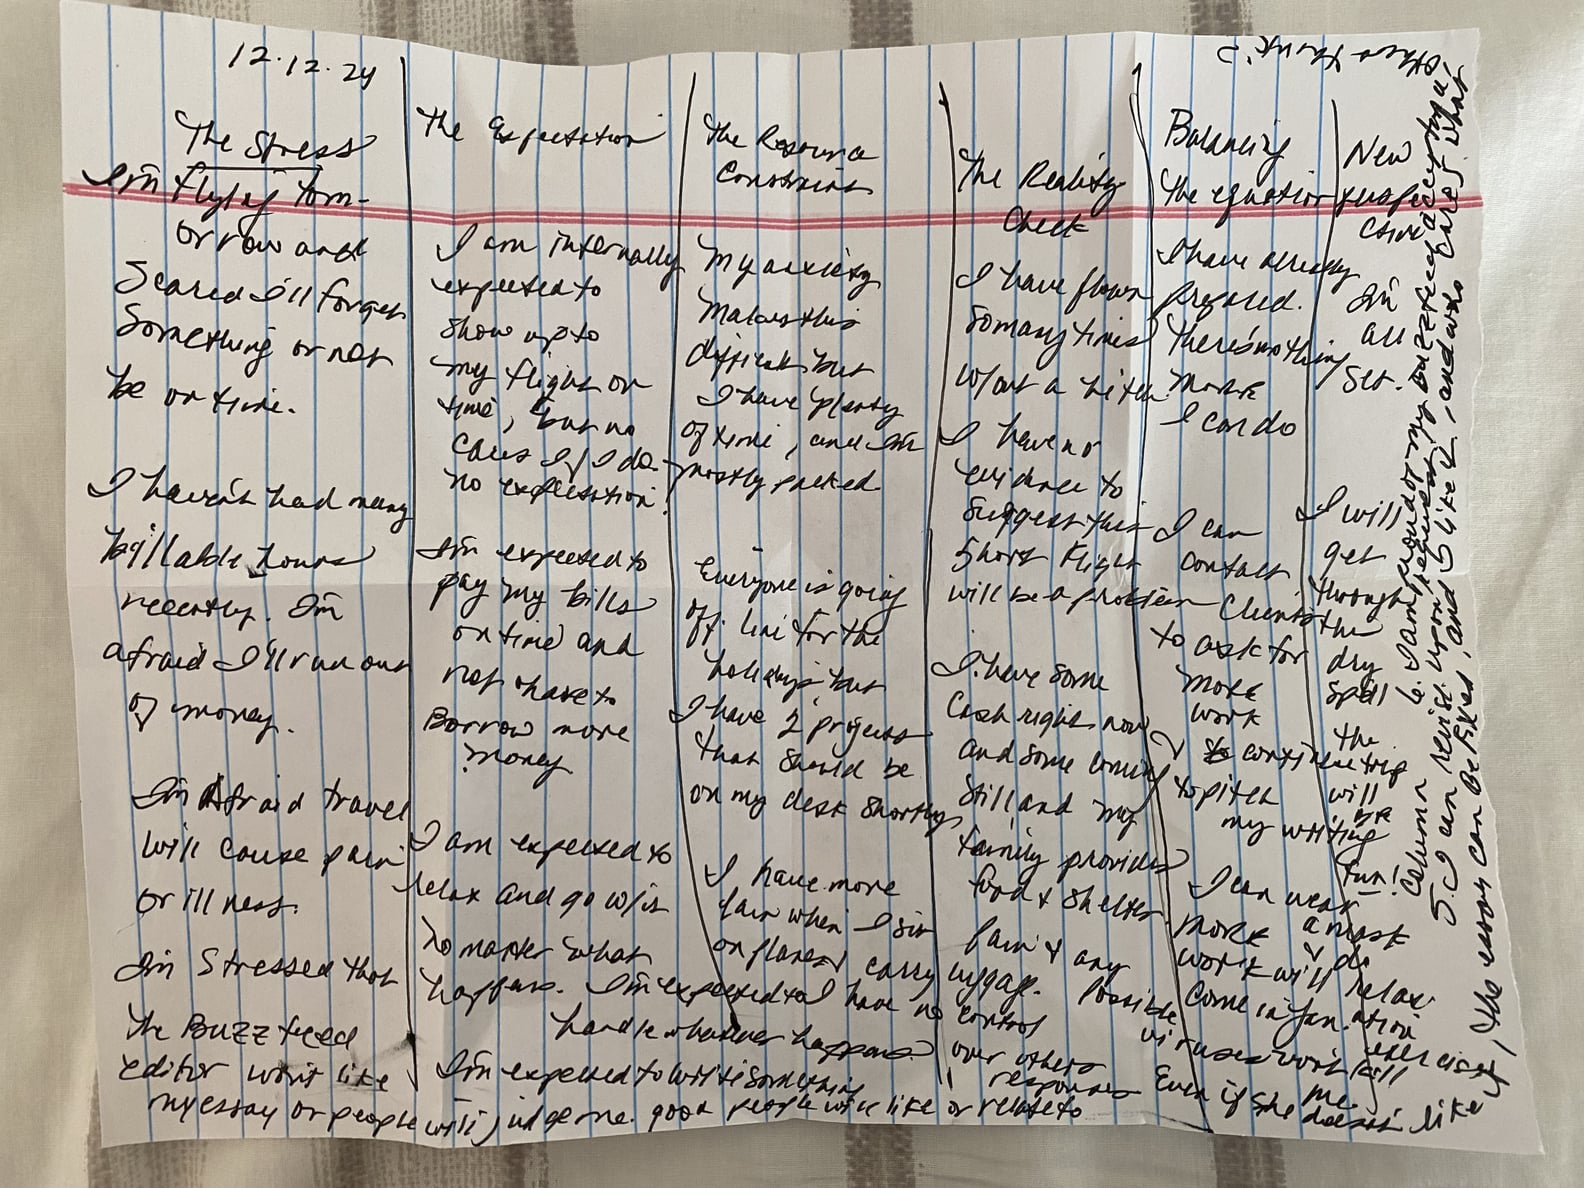 12.12.24
The Stress
I'm flying tom-
orrow and
Scared I'll forget
Something or not
be on time.
I haven't had many
billable hours
recently. I'm
afraid I'll run out
of money.
I'm Afraid travel
will cause pain
or illness.
I'm stressed that
the Buzzfeed
editor won't like
my essay or people will judge me.
The Expectation
I am internally
expected to
show up to
my flight on
time, but no
cares if I do-
no expectation!
I'm expected to
pay my bills
on time and
not have to
Borrow more
money
I am expected to
relax and go w/it
no matter what
happens. I'm expected to
handle whatever happens.
I'm expected to write something
good people will like or relate to
The Resource
Constraint
My anxiety
Makes this
difficult but
I have plenty
of time, and I'm
mostly packed
Everyone is going
off line for the
holidays but
I have 2 projects
that should be
on my desk shortly
I have more
pain when I sit
on planes & carry luggage.
I have no control
over others
responses
The Reality
Check
I have flown
so many times
w/out a hitch.
I have no
evidence to
suggest this
short flight
will be a problem
I have some
Cash right now
and some coming
still and my
family provides
food & shelter.
Pain & any
possible
viruses won't kill
me
Even if she doesn't like it, the essay can be fixed, and I like it, and who cares what
others think?
Balancing
the equation
I have already
prepared.
There's nothing
more
I can do
I can
contact
clients
to ask for
more
work
& continue
to pitch
my writing
more
work will
come in Jan.
I can wear
a mask
& do
relax
ation
exercises
5. I can revise upon request,
New
perspec
tive
I'm
all
set.
I will
get
through
the
dry
spell
the
trip
will
be
fun!
Column 6. I am proud of my Buzzfeed